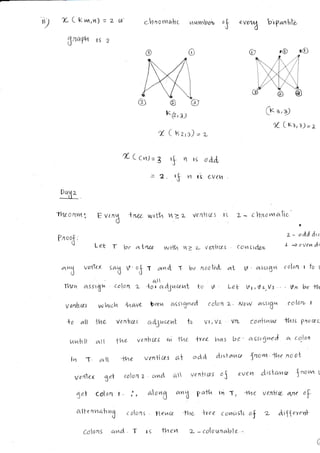 ii) χ(Km,n) = 2 ie chromatic number of every bipartite
graph is 2
K(2,3)
χ(K2,3) = 2
(K3,3)
χ(K3,3) = 2
χ(Cn) = 3 if n is odd
= 2. if n is even.
Theorm: Every tree with n≥2 vertices is 2-chromatic
Proof:
Let T be a tree with n≥2 vertices. consider
2 - odd dis
1 → even d
any vertex say v of T and T be rooted at v. assign color 1 to
then assign color 2 to all adjacent to v. Let v1, v2, v3 ... vn be th
vertices which have been assigned color 2. Now assign color 1
to all the vertices adjacent to v1, v2 vn. continue this proces
until all the vertices in the tree has be assigned a color
In T all the vertices at odd distance from the root
vertex get color 2. and all vertices of even distance from
get color 1. ∴ along any path in T, the vertice are of
alternating colors. Hence the tree consist of 2 different
colors and. T is then 2-colourable.